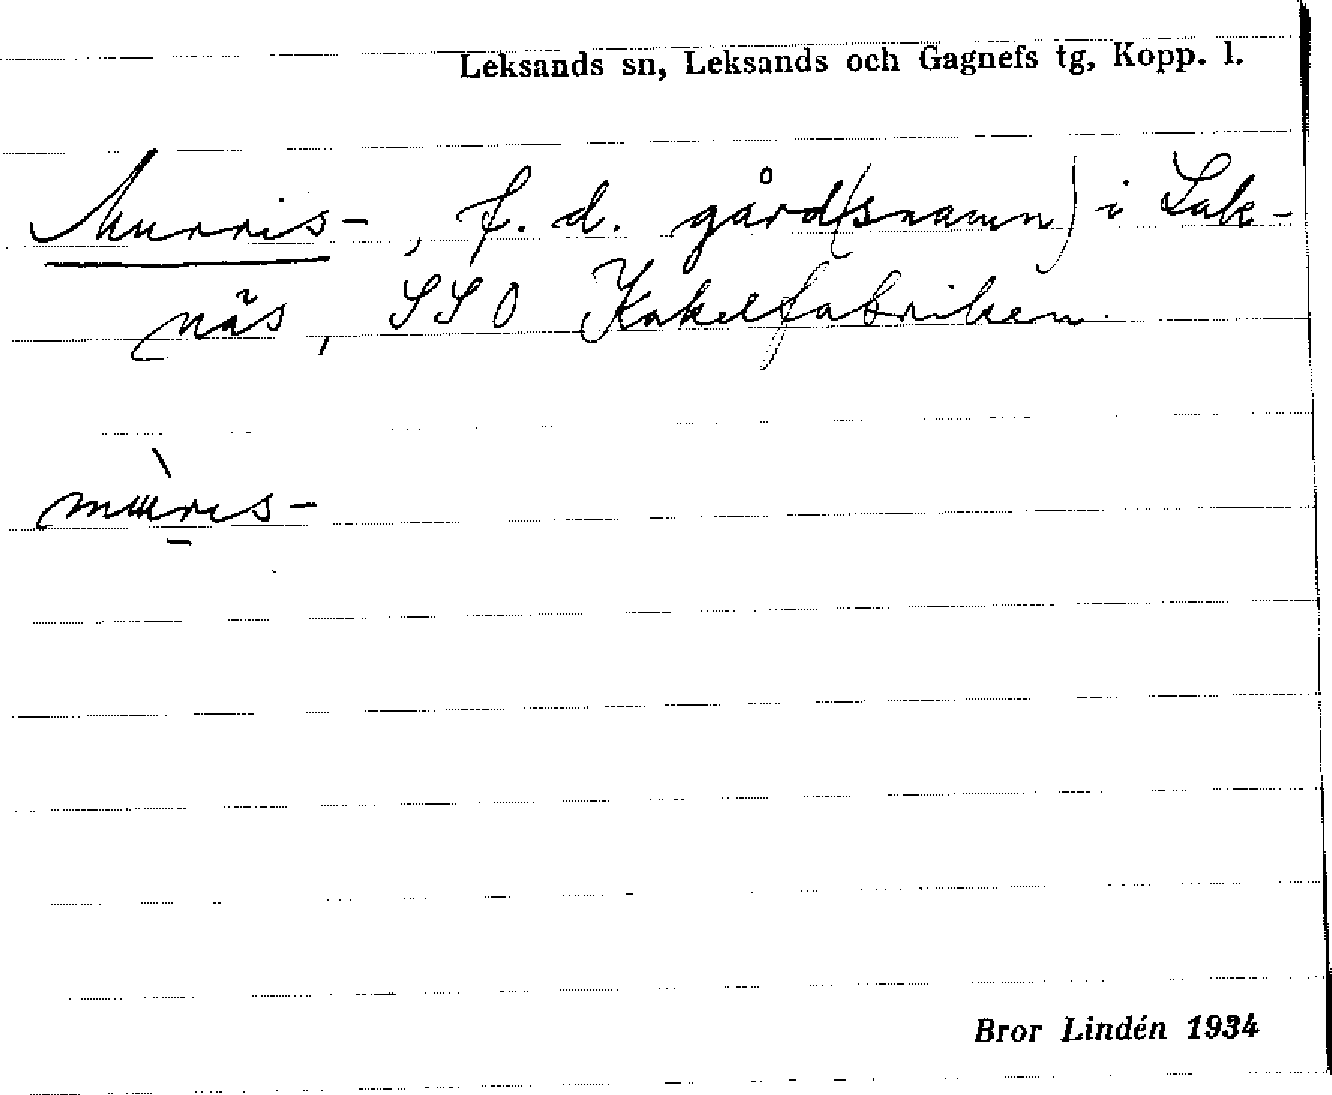 Leksands sn, Leksands och Gagnefs tg, Kopp. l.
Murris-, f. d. gård(snamn) i Lak-
näs, SSO Kakelfabriken.
Bror Lindén 1934